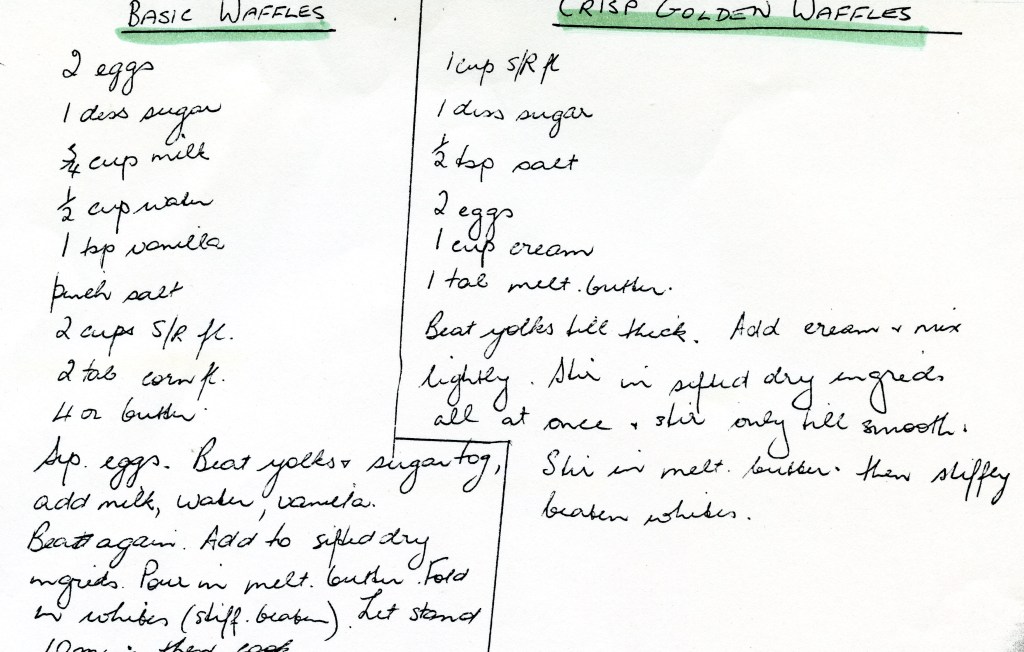 BASIC WAFFLES
2 eggs
1 dess sugar
3/4 cup milk
1/2 cup water
1 tsp vanilla
pinch salt
2 cups S/R fl.
2 tab corn fl.
4 oz butter.
Sep. eggs. Beat yolks & sugar tog,
add milk, water, vanilla.
Beat again. Add to sifted dry
ingreds. Pour in melt. butter. Fold
in whites (stiff. beaten). Let stand
10m then cook
CRISP GOLDEN WAFFLES
1 cup S/R fl
1 dess sugar
1/2 tsp salt
2 eggs
1 cup cream
1 tab melt. butter.
Beat yolks till thick. Add cream & mix
lightly. Stir in sifted dry ingreds
all at once & stir only till smooth.
Stir in melt. butter. then stiffly
beaten whites.